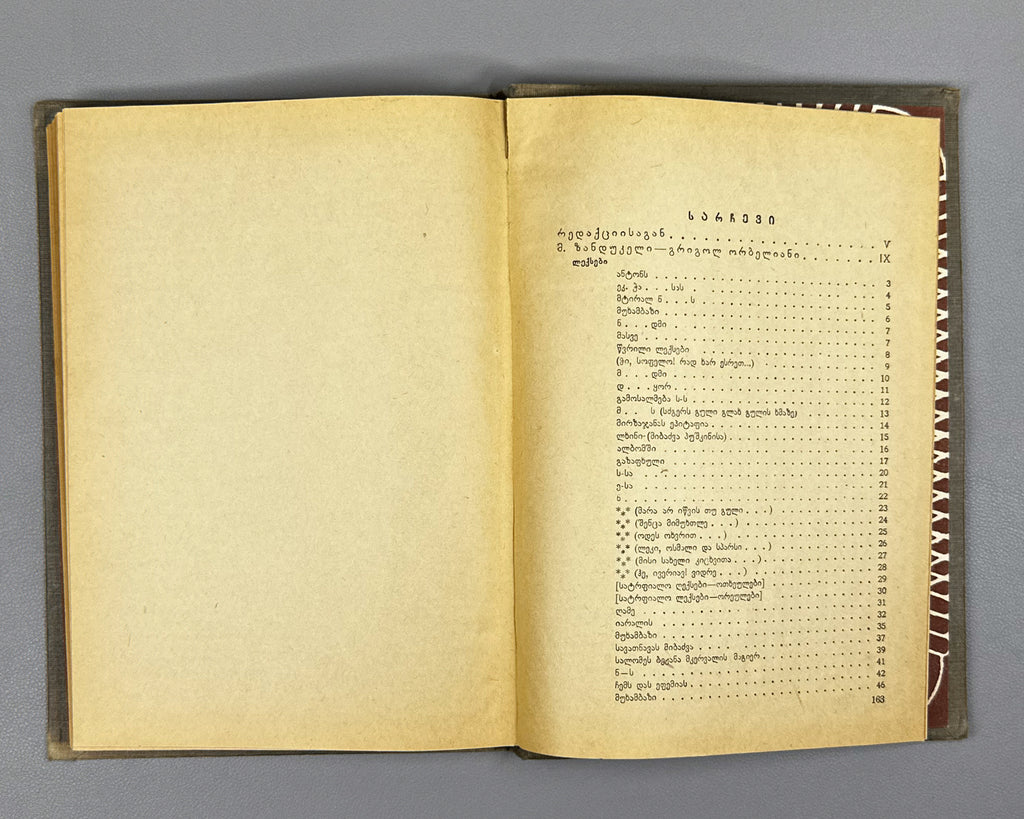 სარჩევი
რედაქციისაგან . . . . . . . . . . . . . V
მ. ზანდუკელი—გრიგოლ ორბელიანი . . . . . . . IX
ლექსები
ანტონს . . . . . . . . . . 3
ეკ. ჭა . . . სას . . . . . . . . . . 4
მტირალ ნ . . . ს . . . . . . . . . . 5
მუხამბაზი . . . . . . . . . . 6
ნ . . . დმი . . . . . . . . . . 7
მასვე . . . . . . . . . . 7
წვრილი ლექსები . . . . . . . . . . 8
(ჰი, სოფელო! რად ხარ ესრეთ...) . . . . . . . . . . 9
მ . . . დმი . . . . . . . . . . 10
დ . . . ყორ . . . . . . . . . . 11
გამოსალმება ს-ს . . . . . . . . . . 12
მ . . ს (სძგერს გული გლახ გულის ხმაზე) . . . . . . . 13
მირზაჯანას ეპიტაფია . . . . . . . . . . 14
ლხინი (მიბაძვა პუშკინისა) . . . . . . . . . . 15
ალბომში . . . . . . . . . . 16
გაზაფხული . . . . . . . . . . 17
ს-სა . . . . . . . . . . 20
ე-სა . . . . . . . . . . 21
ნ . . . . . . . . . . 22
*** (მარა არ იწვის თუ გული . . . ) . . . . . . . . . . 23
*** (შენცა მიმუხთლე . . . ) . . . . . . . . . . 24
*** (ოდეს ოხვრით . . . ) . . . . . . . . . . 25
*** (ლეკი, ოსმალი და სპარსი . . . ) . . . . . . . . . . 26
*** (მისი სახელი კიცხვითა . . . ) . . . . . . . . . . 27
*** (ჰე, ივერიავ! ვიდრე . . . ) . . . . . . . . . . 28
[სატრფიალო ლექსები—ოთხეულები] . . . . . . . . . . 29
[სატრფიალო ლექსები—ორეულები] . . . . . . . . . . 30
ღამე . . . . . . . . . . 31
იარალის . . . . . . . . . . 32
მუხამბაზი . . . . . . . . . . 35
სავათნავას მიბაძვა . . . . . . . . . . 37
სალომეს მკერვალის მაგიერ . . . . . . . . . . 39
ნ—ს . . . . . . . . . . 41
ჩემს დას ეფემიას . . . . . . . . . . 42
მუხამბაზი . . . . . . . . . . 46
163